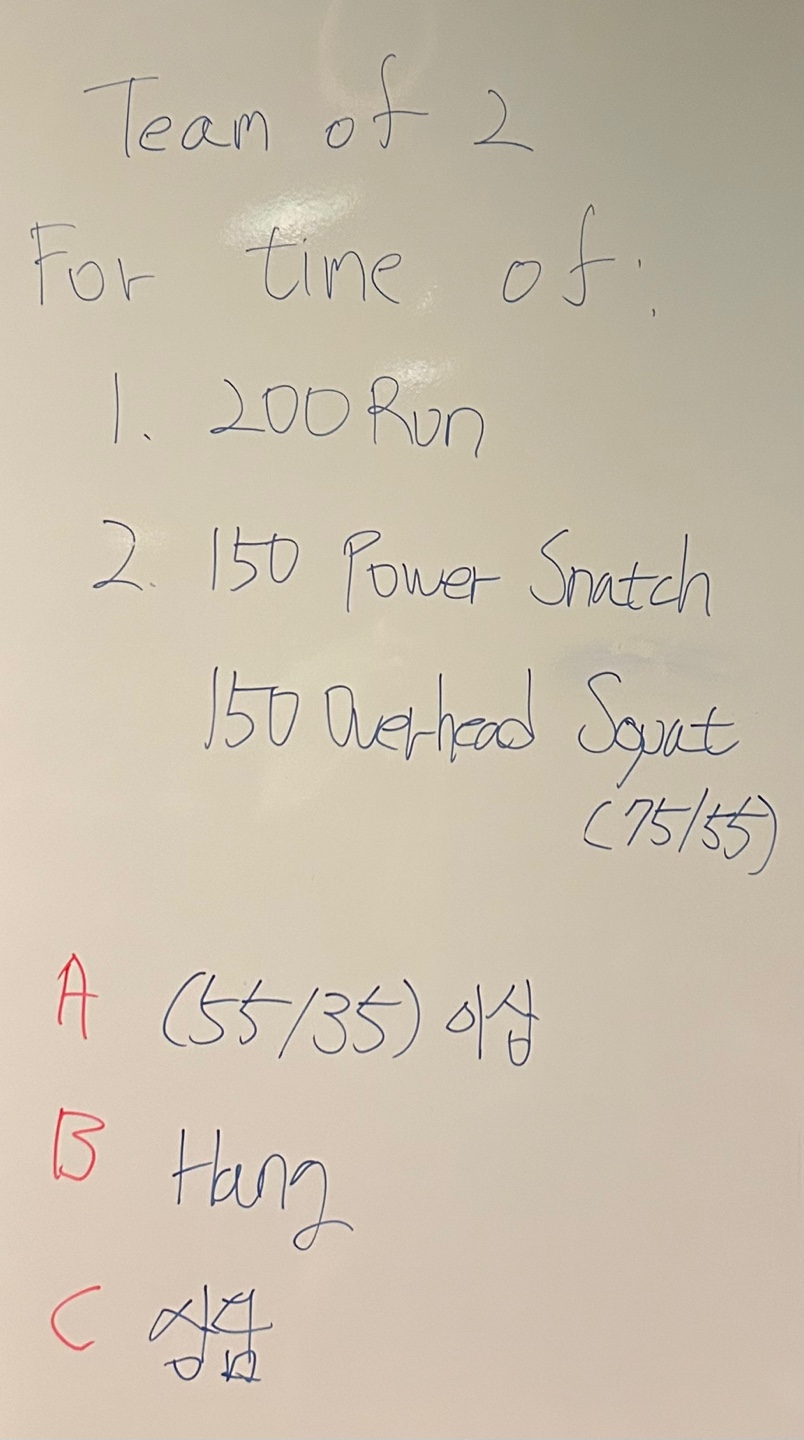 Team of 2
For time of:
1. 200 Run
2. 150 Power Snatch
150 Overhead Squat
(75/55)
A (55/35) 이상
B Hang
C 싱글